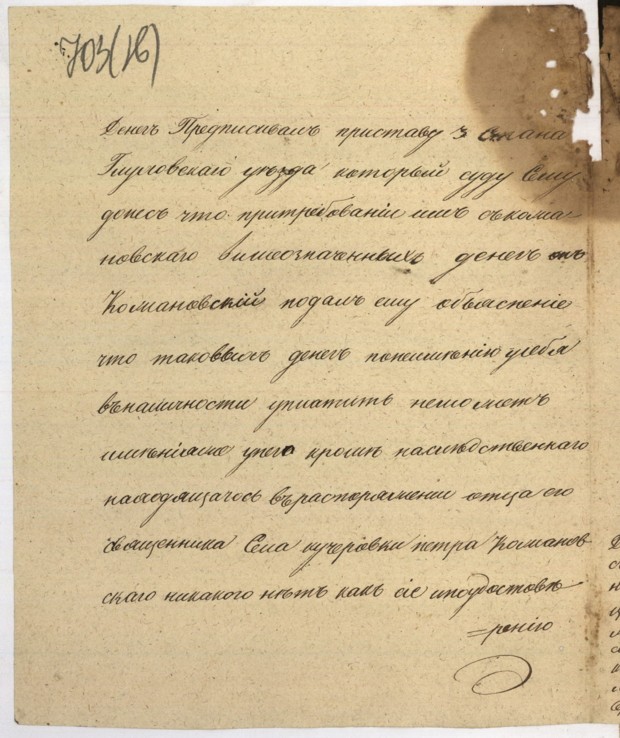 703(16)
Денегъ Предписивалъ приставу 3 Стана
Глуховскаго уезда который суду Ему
донесъ что притребованіи имъ съкома-
новскаго вишеозначенныхъ денегъ онъ
Комановскій подалъ ему объясненіе
что таковыхъ денегъ понеимѣнію усебя
въналичности уплатить неможетъ
имѣніяже унего кромѣ наслѣдственнаго
находящагось въраспоряженіи отца его
священника Села кучеровки петра Команов-
скаго никакого нѣтъ какъ сіе иподостовѣ
=ренію